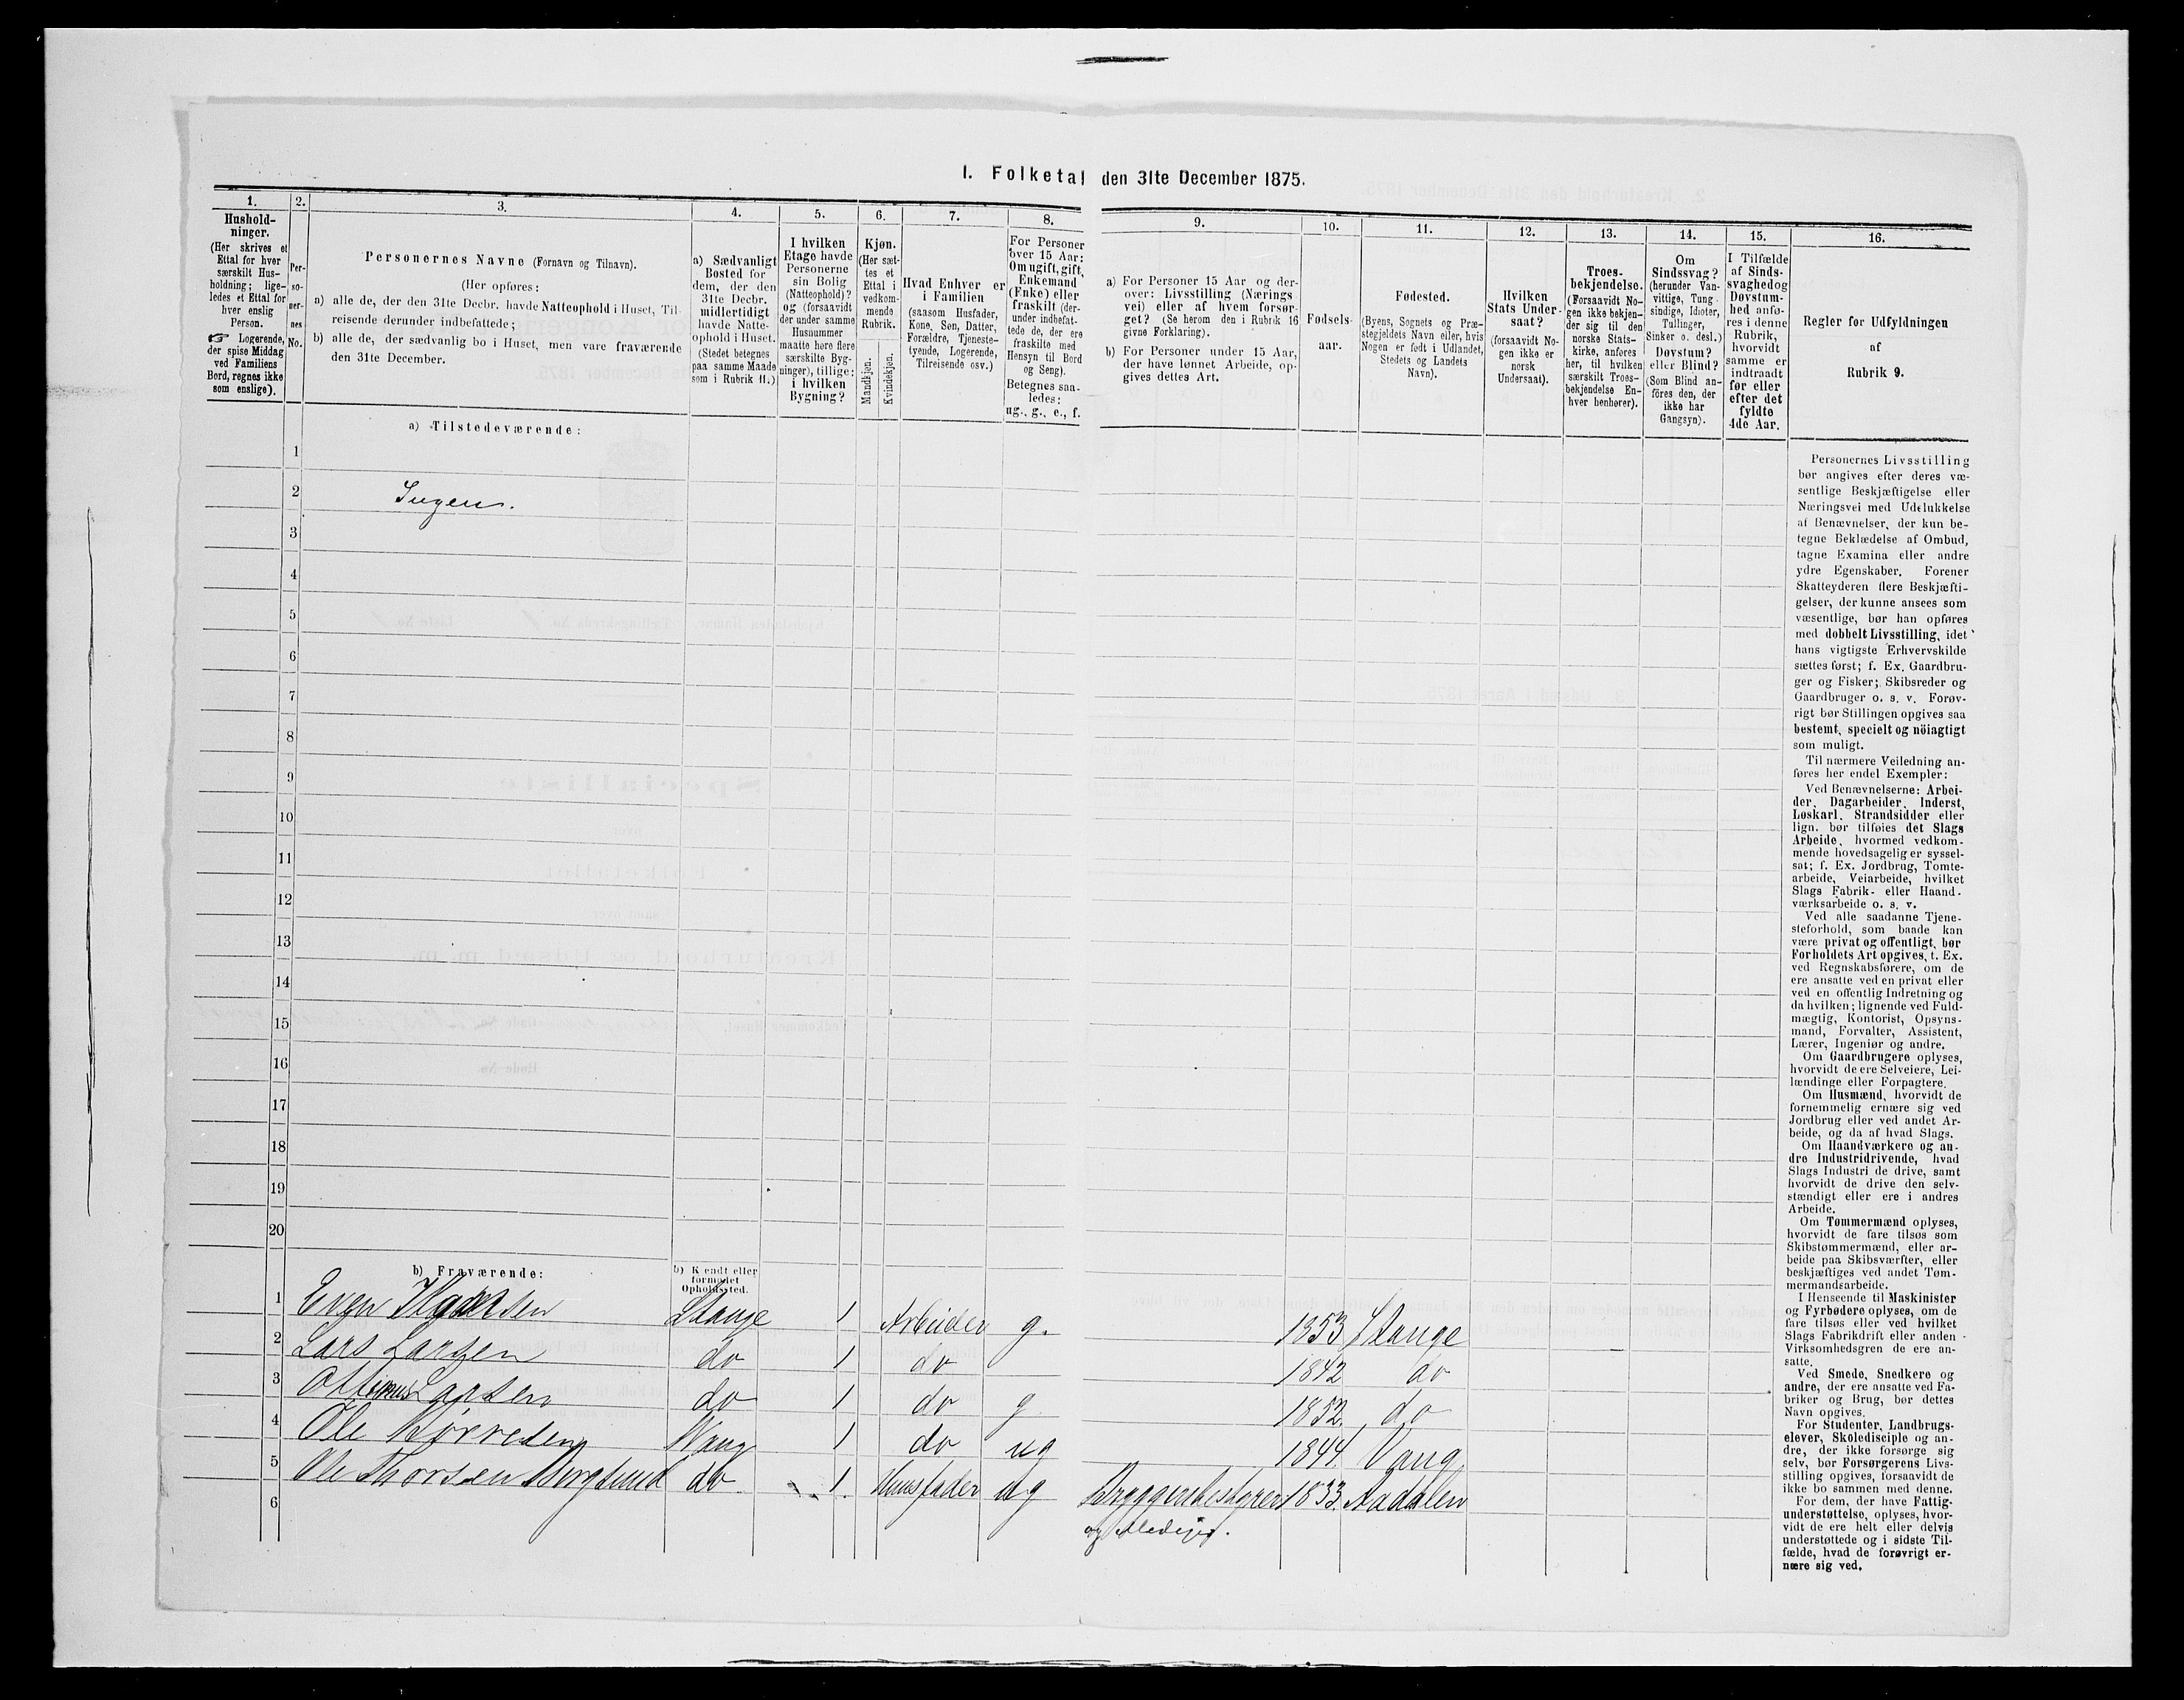 1. Folketal den 31te December 1875.
1.
Hushold-
ninger.
(Her skrives et
Ettal for hver
særskilt Hus-
holdning; lige-
ledes et Ettal for
hver enslig
Person.
☞ Logerende,
der spise Middag
ved Familiens
Bord, regnes ikke
som enslige).
2.
Per-
so-
ner-
nes
No.
3.
Personernes Navne (Fornavn og Tilnavn).
(Her opføres:
a) alle de, der den 31te Decbr. havde Natteophold i Huset, Til-
reisende derunder indbefattede;
b) alle de, der sædvanlig bo i Huset, men vare fraværende
den 31te December.
4.
a) Sædvanligt
Bosted for
dem, der den
31te Decbr.
midlertidigt
havde Natte-
ophold i Huset.
(Stedet betegnes
paa samme Maade
som i Rubrik 11.)
5.
I hvilken
Etage havde
Personerne
sin Bolig
(Natteophold)?
og (forsaavidt
der under samme
Husnummer
maatte høre flere
særskilte Byg-
ninger), tillige:
i hvilken
Bygning?
6.
Kjøn.
(Her sæt-
tes et
Ettal i
vedkom-
mende
Rubrik.
Mandkjøn.
Kvindekjøn.
7.
Hvad Enhver er
i Familien
(saasom Husfader,
Kone, Søn, Datter,
Forældre, Tjeneste-
tyende, Logerende,
Tilreisende osv.)
8.
For Personer
over 15 Aar:
Om ugift, gift,
Enkemand
(Enke) eller
fraskilt (der-
under indbefat-
tede de, der ere
fraskilte med
Hensyn til Bord
og Seng).
Betegnes saa-
ledes:
ug., g., e., f.
9.
a) For Personer 15 Aar og der-
over: Livsstilling (Nærings
vei) eller af hvem forsør-
get? (Se herom den i Rubrik 16
givne Forklaring).
b) For Personer under 15 Aar,
der have lønnet Arbeide, op-
gives dettes Art.
10.
Fødsels-
aar.
11.
Fødested.
(Byens, Sognets og Præ-
stegjeldets Navn eller, hvis
Nogen er født i Udlandet,
Stedets og Landets
Navn).
12.
Hvilken
Stats Under-
saat?
(forsaavidt No-
gen ikke er
norsk
Undersaat).
13.
Troes-
bekjendelse.
(Forsaavidt No-
gen ikke bekjen-
der sig til den
norske Stats-
kirke, anføres
her, til hvilken
særskilt Troes-
bekjendelse En-
hver henhører).
14.
Om
Sindssvag?
(herunder Van-
vittige, Tung-
sindige, Idioter,
Tullinger,
Sinker o. desl.)
Døvstum?
eller Blind?
(Som Blind an-
føres den, der
ikke har
Gangsyn).
15.
I Tilfælde
af Sinds-
svaghed og
Døvstum-
hed anfø-
res i denne
Rubrik,
hvorvidt
samme er
indtraadt
før eller
efter det
fyldte
4de Aar.
16.
Regler for Udfyldningen
af
Rubrik 9.
a) Tilstedeværende:
1
2 Ingen.
3
4
5
6
7
8
9
10
11
12
13
14
15
16
17
18
19
20
b) Fraværende:
b) Kjendt eller
formodet
Opholdssted.
1 Even Stange 1 Arbeider g. 1853 Stange
2 Lars Larsen do 1 do 1842 do
3 Larsen do 1 do g 1852. do
4 Ole Wang 1 do ug 1844. Vang
5 Ole Thorsen Bergsund do 1. Huusfader ug Bryggeribestyrer 1833. Aadalen
6 og
Personernes Livsstilling
bør angives efter deres væ-
sentlige Beskjæftigelse eller
Næringsvei med Udelukkelse
af Benævnelser, der kun be-
tegne Beklædelse af Ombud,
tagne Examina eller andre
ydre Egenskaber. Forener
Skatteyderen flere Beskjæfti-
gelser, der kunne ansees som
væsentlige, bør han opføres
med dobbelt Livsstilling, idet
hans vigtigste Erhvervskilde
sættes først; f. Ex. Gaardbru-
ger og Fisker; Skibsreder og
Gaardbruger o. s. v. Forøv-
rigt bør Stillingen opgives saa
bestemt, specielt og nöiagtigt
som muligt.
Til nærmere Veiledning an-
føres her endel Exempler:
Ved Benævnelserne: Arbei-
der, Dagarbeider, Inderst,
Løskarl, Strandsidder eller
lign. bør tilføies det Slags
Arbeide, hvormed vedkom-
mende hovedsagelig er syssel-
sat; f. Ex. Jordbrug, Tomte-
arbeide, Veiarbeide, hvilket
Slags Fabrik- eller Haand-
værksarbeide o. s. v.
Ved alle saadanne Tjene-
steforhold, som baade kan
være privat og offentligt, bør
Forholdets Art opgives, t. Ex.
ved Regnskabsførere, om de
ere ansatte ved en privat eller
ved en offentlig Indretning og
da hvilken; lignende ved Fuld-
mægtig, Kontorist, Opsyns-
mand, Forvalter, Assistent,
Lærer, Ingeniør og andre.
Om Gaardbrugere oplyses,
hvorvidt de ere Selveiere, Lei-
lændinge eller Forpagtere.
Om Husmænd, hvorvidt de
fornemmelig ernære sig ved
Jordbrug eller ved andet Ar-
beide, og da af hvad Slags.
Om Haandværkere og an-
dre Industridrivende, hvad
Slags Industri de drive, samt
hvorvidt de drive den selv-
stændigt eller ere i andres
Arbeide.
Om Tømmermænd oplyses,
hvorvidt de fare tilsøs som
Skibstømmermænd, eller ar-
beide paa Skibsværfter, eller
beskjæftiges ved andet Tøm-
mermandsarbeide.
I Henseende til Maskinister
og Fyrbødere oplyses, om de
fare tilsøs eller ved hvilket
Slags Fabrikdrift eller anden
Virksomhedsgren de ere an-
satte.
Ved Smede, Snedkere og
andre, der ere ansatte ved Fa-
briker og Brug, bør dettes
Navn opgives.
For Studenter, Landbrugs-
elever, Skoledisciple og an-
dre, der ikke forsørge sig
selv, bør Forsørgerens Livs-
stilling opgives, forsaavidt de
ikke bo sammen med denne.
For dem, der have Fattig-
understøttelse, oplyses, hvor-
vidt de ere helt eller delvis
understøttede og i sidste Til-
fælde, hvad de forøvrigt er-
nære sig ved.